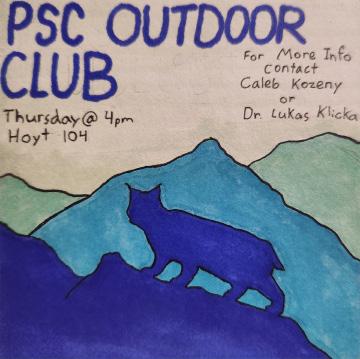 PSC OUTDOOR
CLUB
Thursday @ 4pm
Hoyt 104
For More Info
Contact
Caleb Kozeny
or
Dr. Lukas Klicka